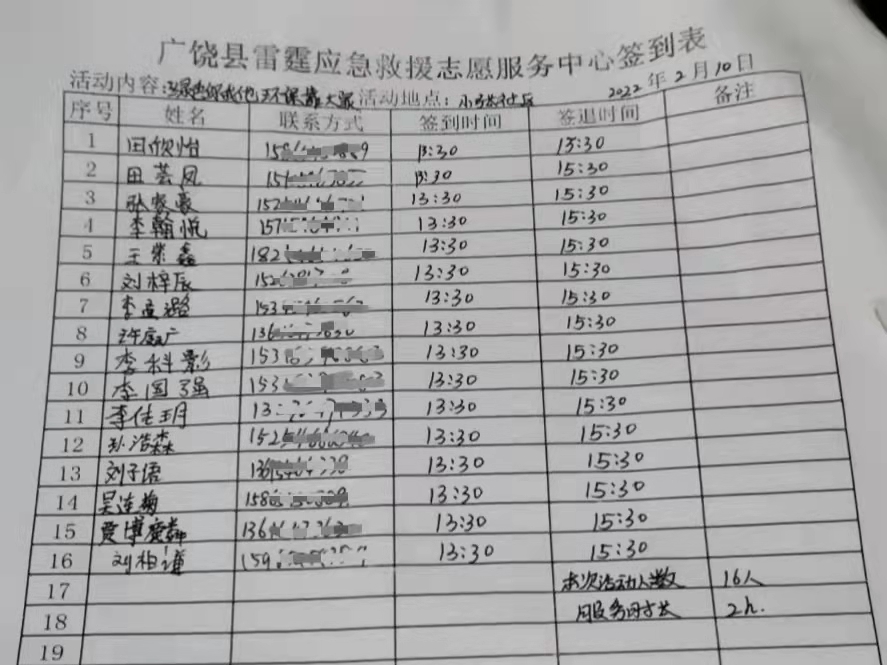 广饶县雷霆应急救援志愿服务中心签到表
活动内容：环保靠大家 活动地点：2022年2月10日
序号 姓名 联系方式 签到时间 签退时间 备注
1 田欣怡 13:30 15:30
2 田芸凤 13:30 15:30
3 张家豪 152 13:30 15:30
4 李翰悦 157 13:30 15:30
5 王崇鑫 182 13:30 15:30
6 刘梓辰 152 13:30 15:30
7 李孟璐 153 13:30 15:30
8 136 13:30 15:30
9 李科影 153 13:30 15:30
10 李国强 153 13:30 15:30
11 李佳玥 13 13:30 15:30
12 孙浩森 152 13:30 15:30
13 刘子语 136 13:30 15:30
14 吴连梅 158 13:30 15:30
15 贾博 136 13:30 15:30
16 刘柏谦 159 13:30 15:30
17 本次活动人数 16人
18 服务时长 2h.
19